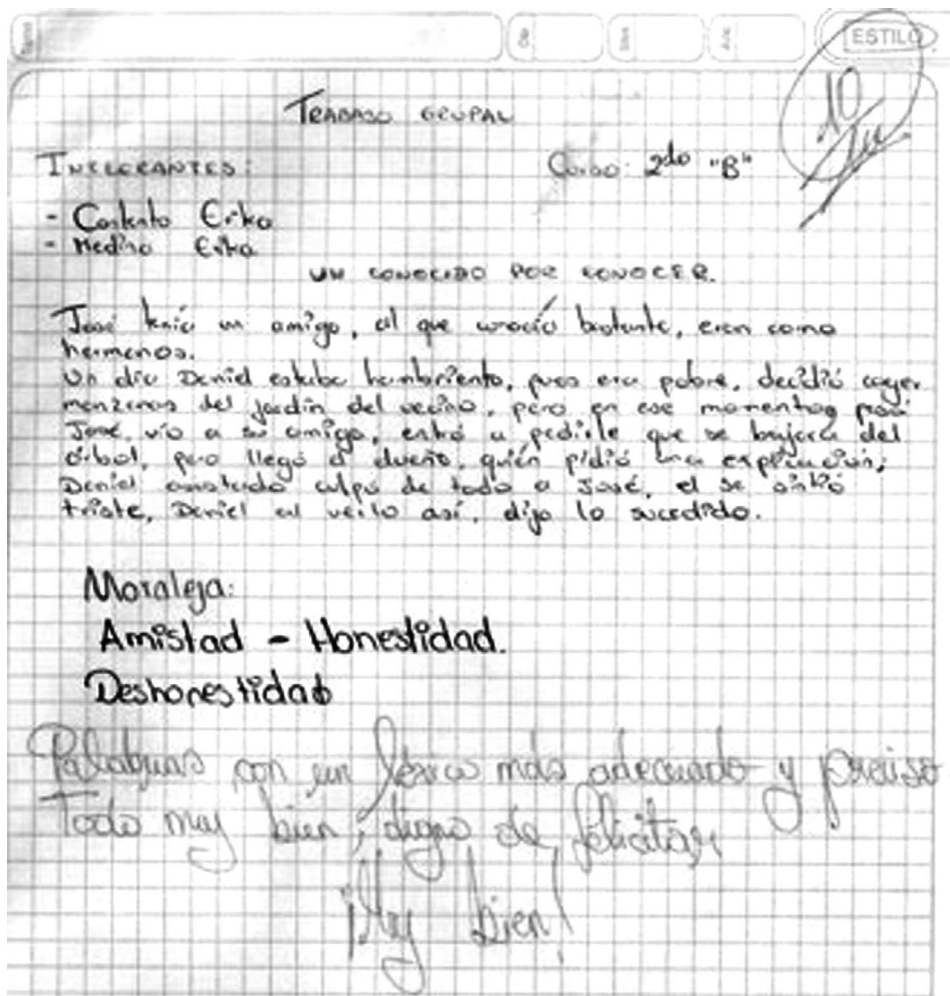 ESTILO
10
TRABAJO GRUPAL
INTEGRANTES:
Curso: 2do "B"
- Erika
- Medina Erika
UN CONOCIDO POR CONOCER.
José tenía un amigo, al que conocía bastante, eran como
hermanos.
Un día Daniel estaba hambriento, pues era pobre, decidió coger
manzanas del jardín del vecino, pero en ese momento pasó
José, vio a su amigo, entró a pedirle que se bajara del
árbol, pero llegó el dueño, quién pidió una explicación;
Daniel asustado culpó de todo a José, el se sintió
triste, Daniel al verlo así, dijo lo sucedido.
Moraleja:
Amistad - Honestidad.
Deshonestidad
Palabras con un léxico más adecuado y preciso
Todo muy bien, digno de felicitar
¡Muy bien!